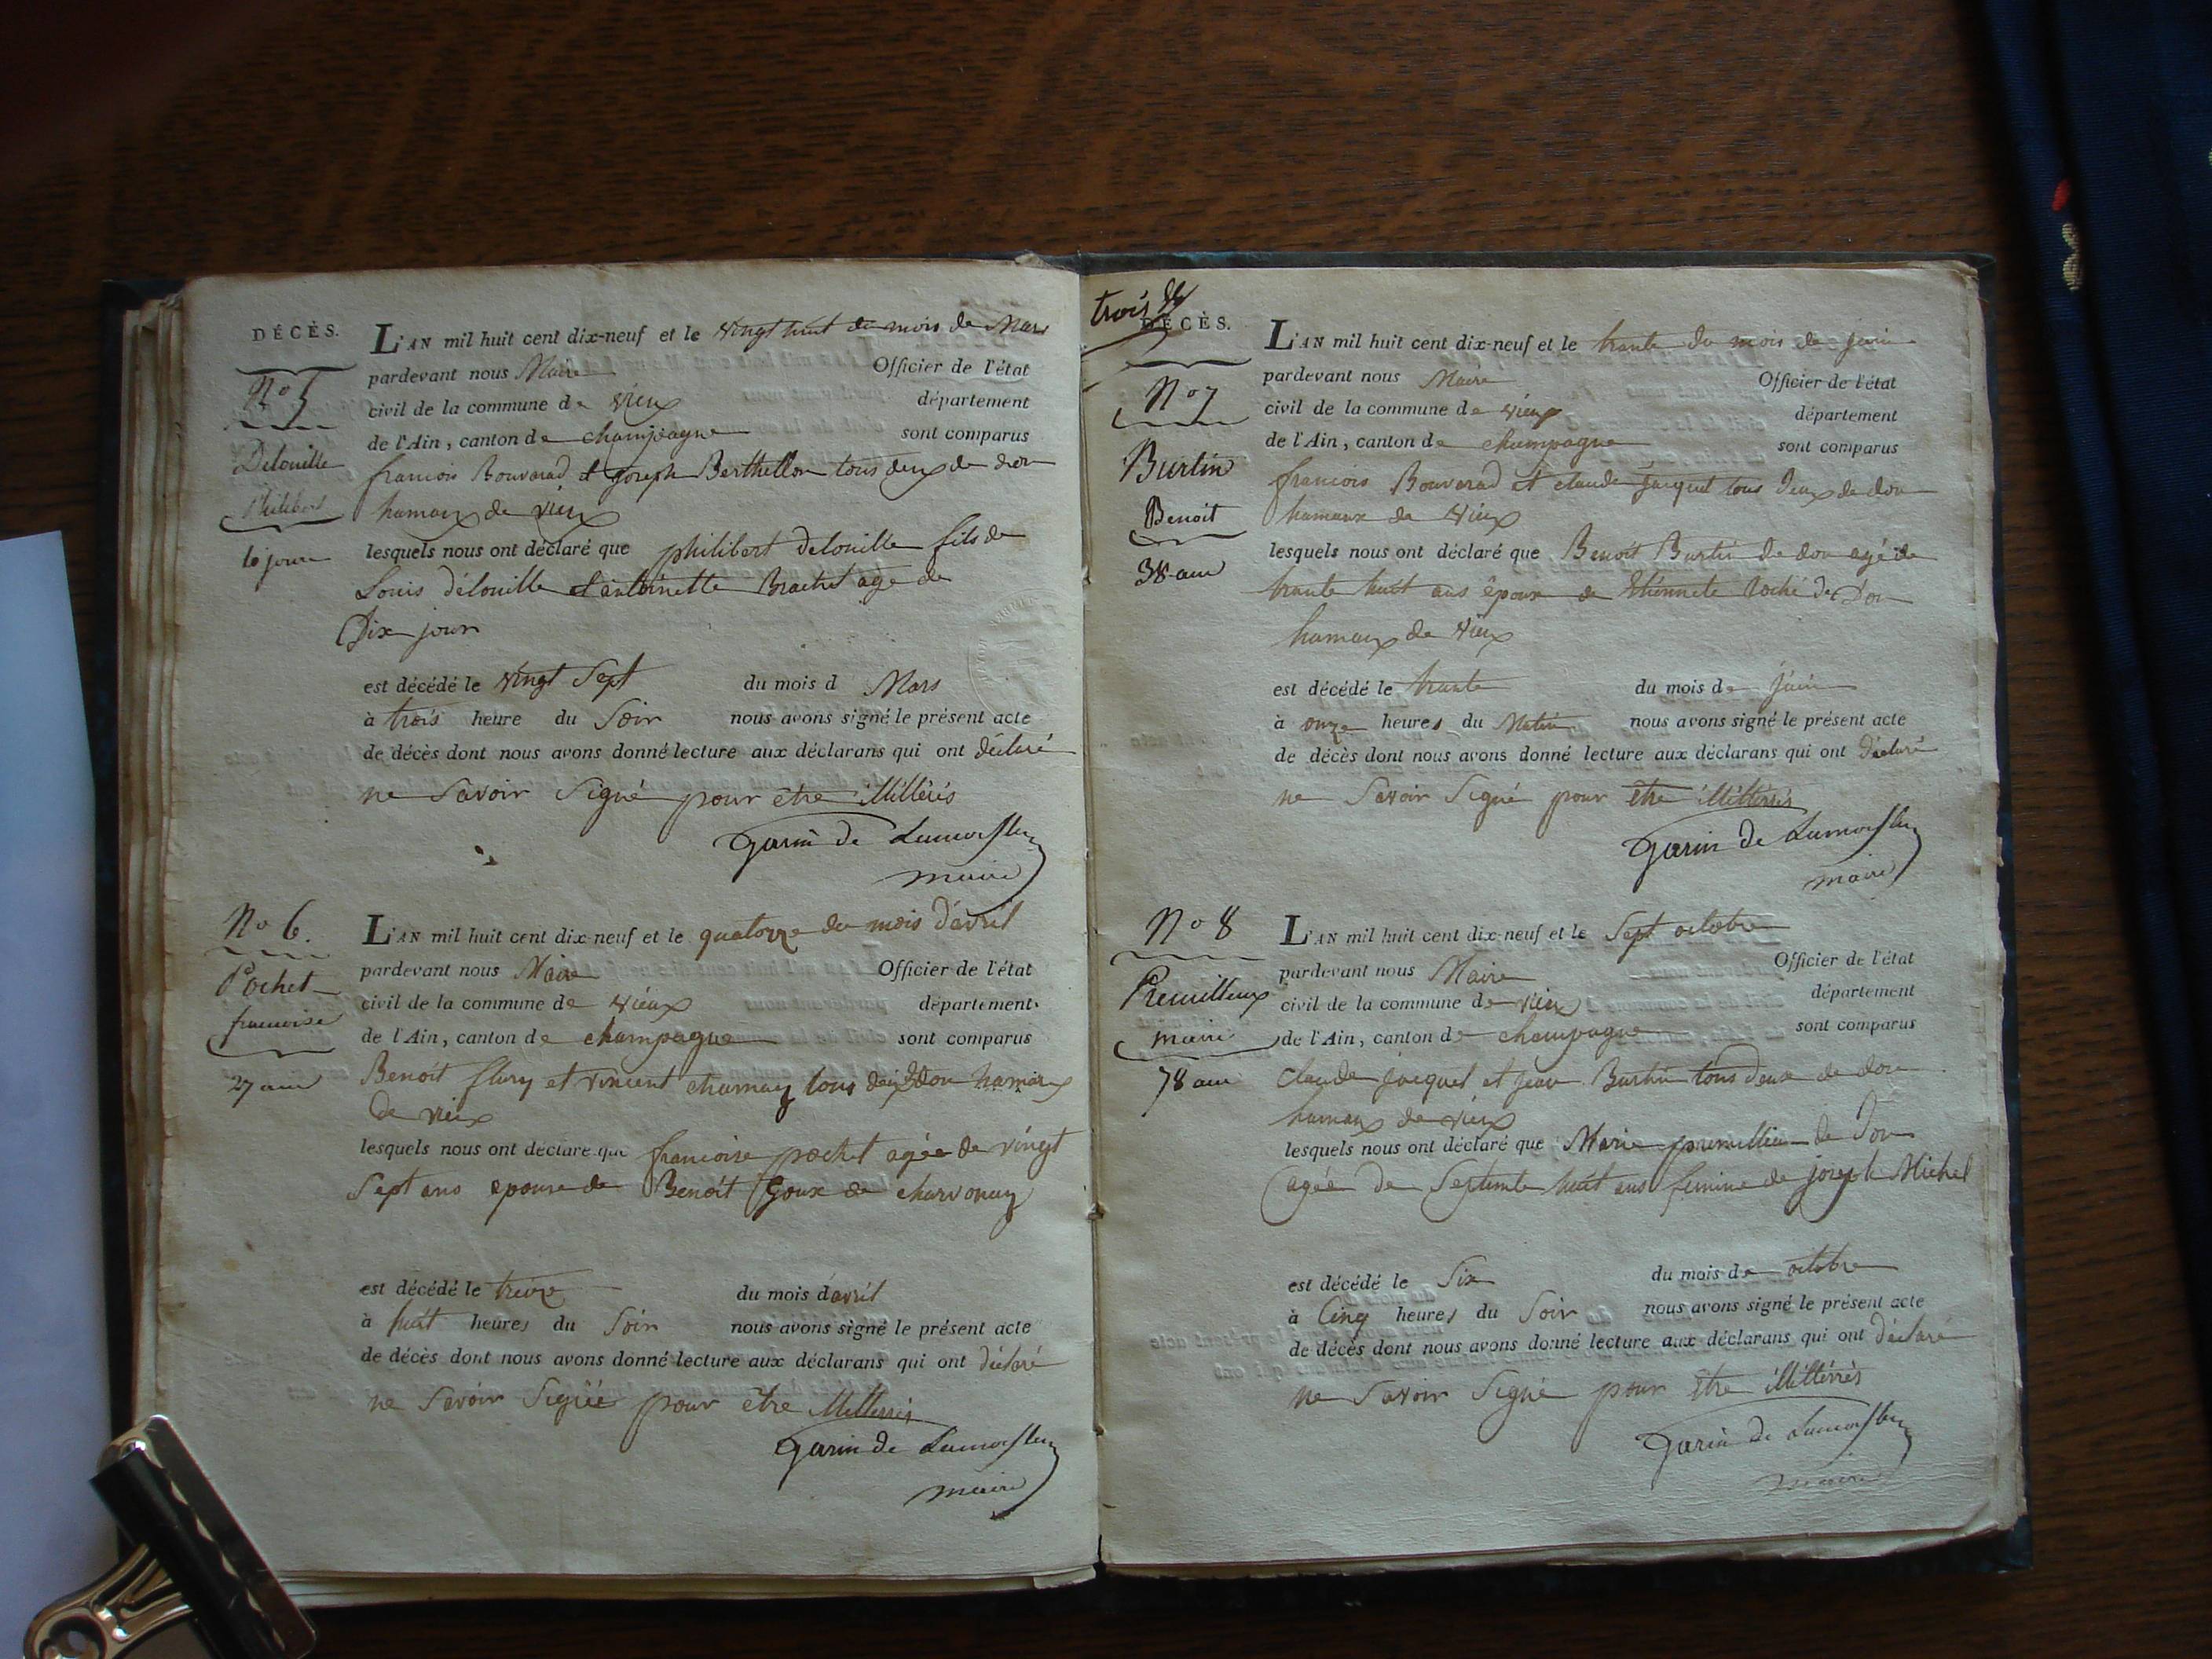 DÉCÈS.
No 5
Delouille
Philibert
10 jours
L'AN mil huit cent dix-neuf et le vingt huit du mois de Mars
pardevant nous Maire Officier de l'état
civil de la commune de vieux département
de l'Ain, canton de champagne sont comparus
francois Bouvarad et Joseph Berthellon tous deux de don
hamaux de vieux
lesquels nous ont déclaré que philibert delouille fils de
Louis délouille et antoinette Brachet age de
Dix jour
est décédé le vingt Sept du mois d Mars
à trois heure du Soir nous avons signé le présent acte
de décès dont nous avons donné lecture aux déclarans qui ont déclaré
ne Savoir Signé pour être illitérés
garin de
maire
No 6.
Pochet
francoise
27 ans
L'AN mil huit cent dix-neuf et le quatorze du mois d'avril
pardevant nous Maire Officier de l'état
civil de la commune de vieux département
de l'Ain, canton de champagne sont comparus
Benoit flury et vincent charnay tous deux de don hamaux
de vieux
lesquels nous ont déclaré que francoise pochet agée de vingt
Sept ans epouse de Benoit Goux de charvonay
est décédé le treize du mois davril
à huit heures du Soir nous avons signé le présent acte
de décès dont nous avons donné lecture aux déclarans qui ont déclaré
ne Savoir Signé pour être
garin de
maire
trois
DÉCÈS.
No 7
Burtin
Benoit
38 ans
L'AN mil huit cent dix-neuf et le trante du mois de juin
pardevant nous Maire Officier de l'état
civil de la commune de vieux département
de l'Ain, canton de champagne sont comparus
francois Bouvarad et claude jacquet tous deux de don
hamaux de vieux
lesquels nous ont déclaré que Benoit Burtin de don agé de
trante huit ans époux de Etiennete Roché de Don
hamaux de vieux
est décédé le trante du mois de juin
à onze heures du Matin nous avons signé le présent acte
de décès dont nous avons donné lecture aux déclarans qui ont déclaré
ne Savoir Signé pour être
garin de
maire
No 8
Premillieux
marie
78 ans
L'AN mil huit cent dix-neuf et le Sept octobre
pardevant nous Maire Officier de l'état
civil de la commune de vieux département
de l'Ain, canton de champagne sont comparus
claude jacquet et jean Burtin tous deux de don
hamaux de vieux
lesquels nous ont déclaré que Marie premillieu de Don
agée de Septente huit ans femme de joseph Michel
est décédé le Six du mois de octobre
à Cinq heures du Soir nous avons signé le présent acte
de décès dont nous avons donné lecture aux déclarans qui ont déclaré
ne Savoir Signé pour être illittérés
garin de
maire